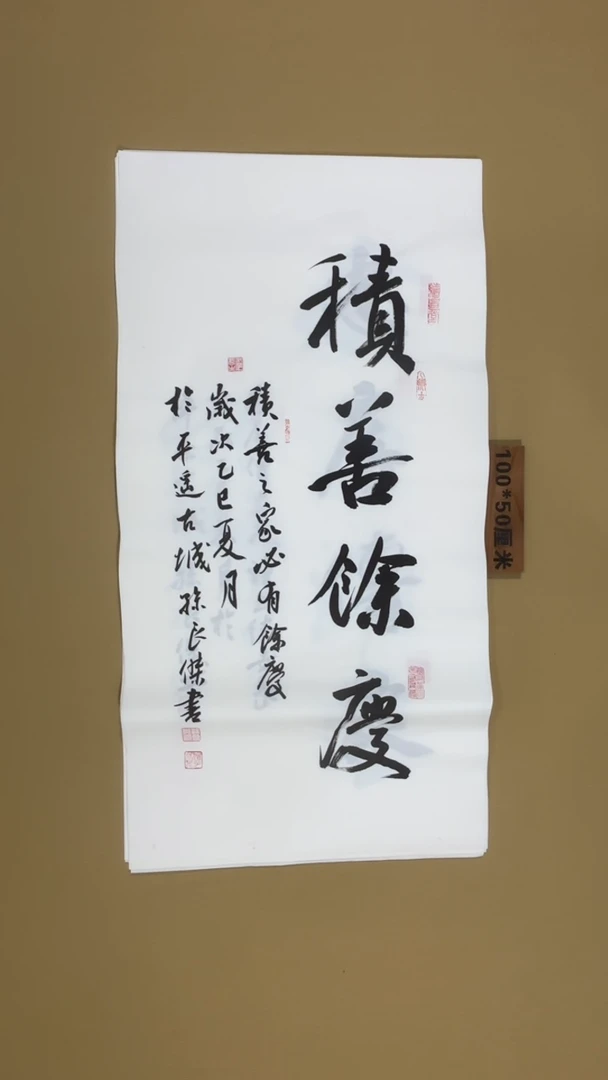 積善餘慶
積善之家必有餘慶
歲次乙巳夏月
於平遥古城孫良傑書
100*50厘米